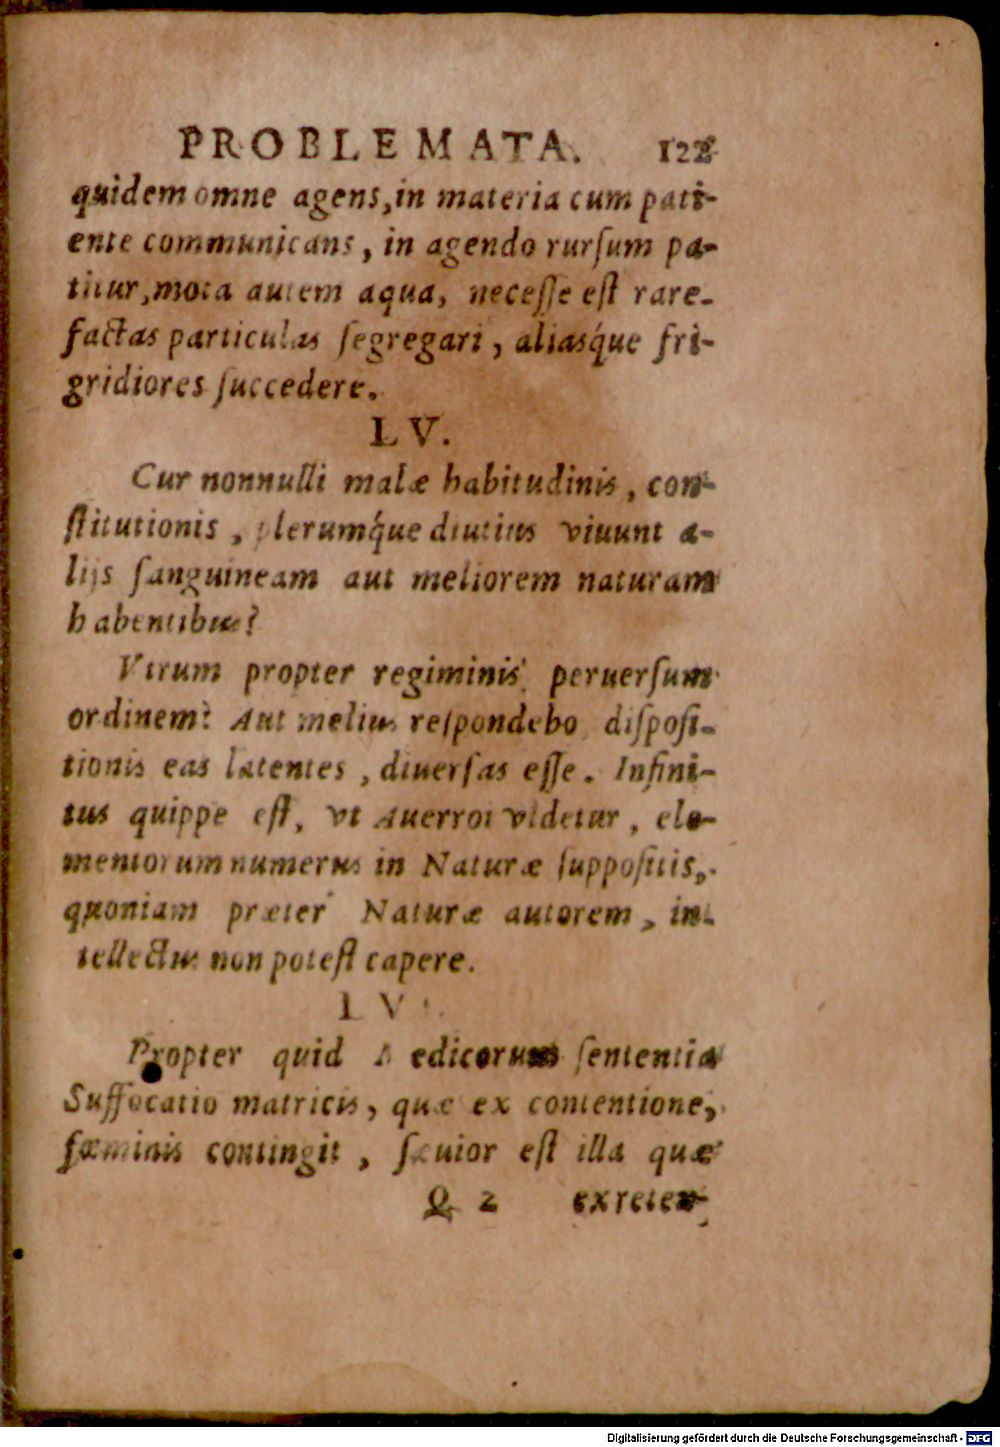 PROBLEMATA. 122
quidem omne agens, in materia cum pati-
ente communicans, in agendo rursum pa-
titur, mota autem aqua, necesse est rare-
factas particulas segregari, aliasq́ue fri-
gridiores succedere.
LV.
Cur nonnulli malæ habitudinis, con-
stitutionis, plerumq́ue diutius viuunt a-
lijs sanguineam aut meliorem naturam
habentibus?
Vtrum propter regiminis peruersum
ordinem? Aut melius respondebo disposi-
tionis eas latentes, diuersas esse. Infini-
tus quippe est, vt Auerroi videtur, ele-
mentorum numerus in Naturæ suppositis,
quoniam præter Naturæ autorem, in-
tellectus non potest capere.
LV
Propter quid Medicorum sententia
Suffocatio matricis, quæ ex contentione,
fœminis contingit, sæuior est illa quæ
Q 2 ex reten-
Digitalisierung gefördert durch die Deutsche Forschungsgemeinschaft - DFG